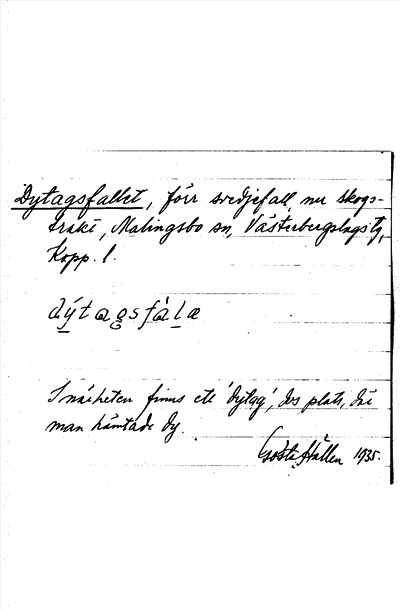 Dytagsfallet, förr svedjefall, nu skogs-
trakt, Malingsbo sn, Västerbergslags tg,
Kopp. l.
dýtagsfàlæ
I närheten finns ett 'dytag', dvs plats, där
man hämtade dy.
Gösta Hallen 1935.